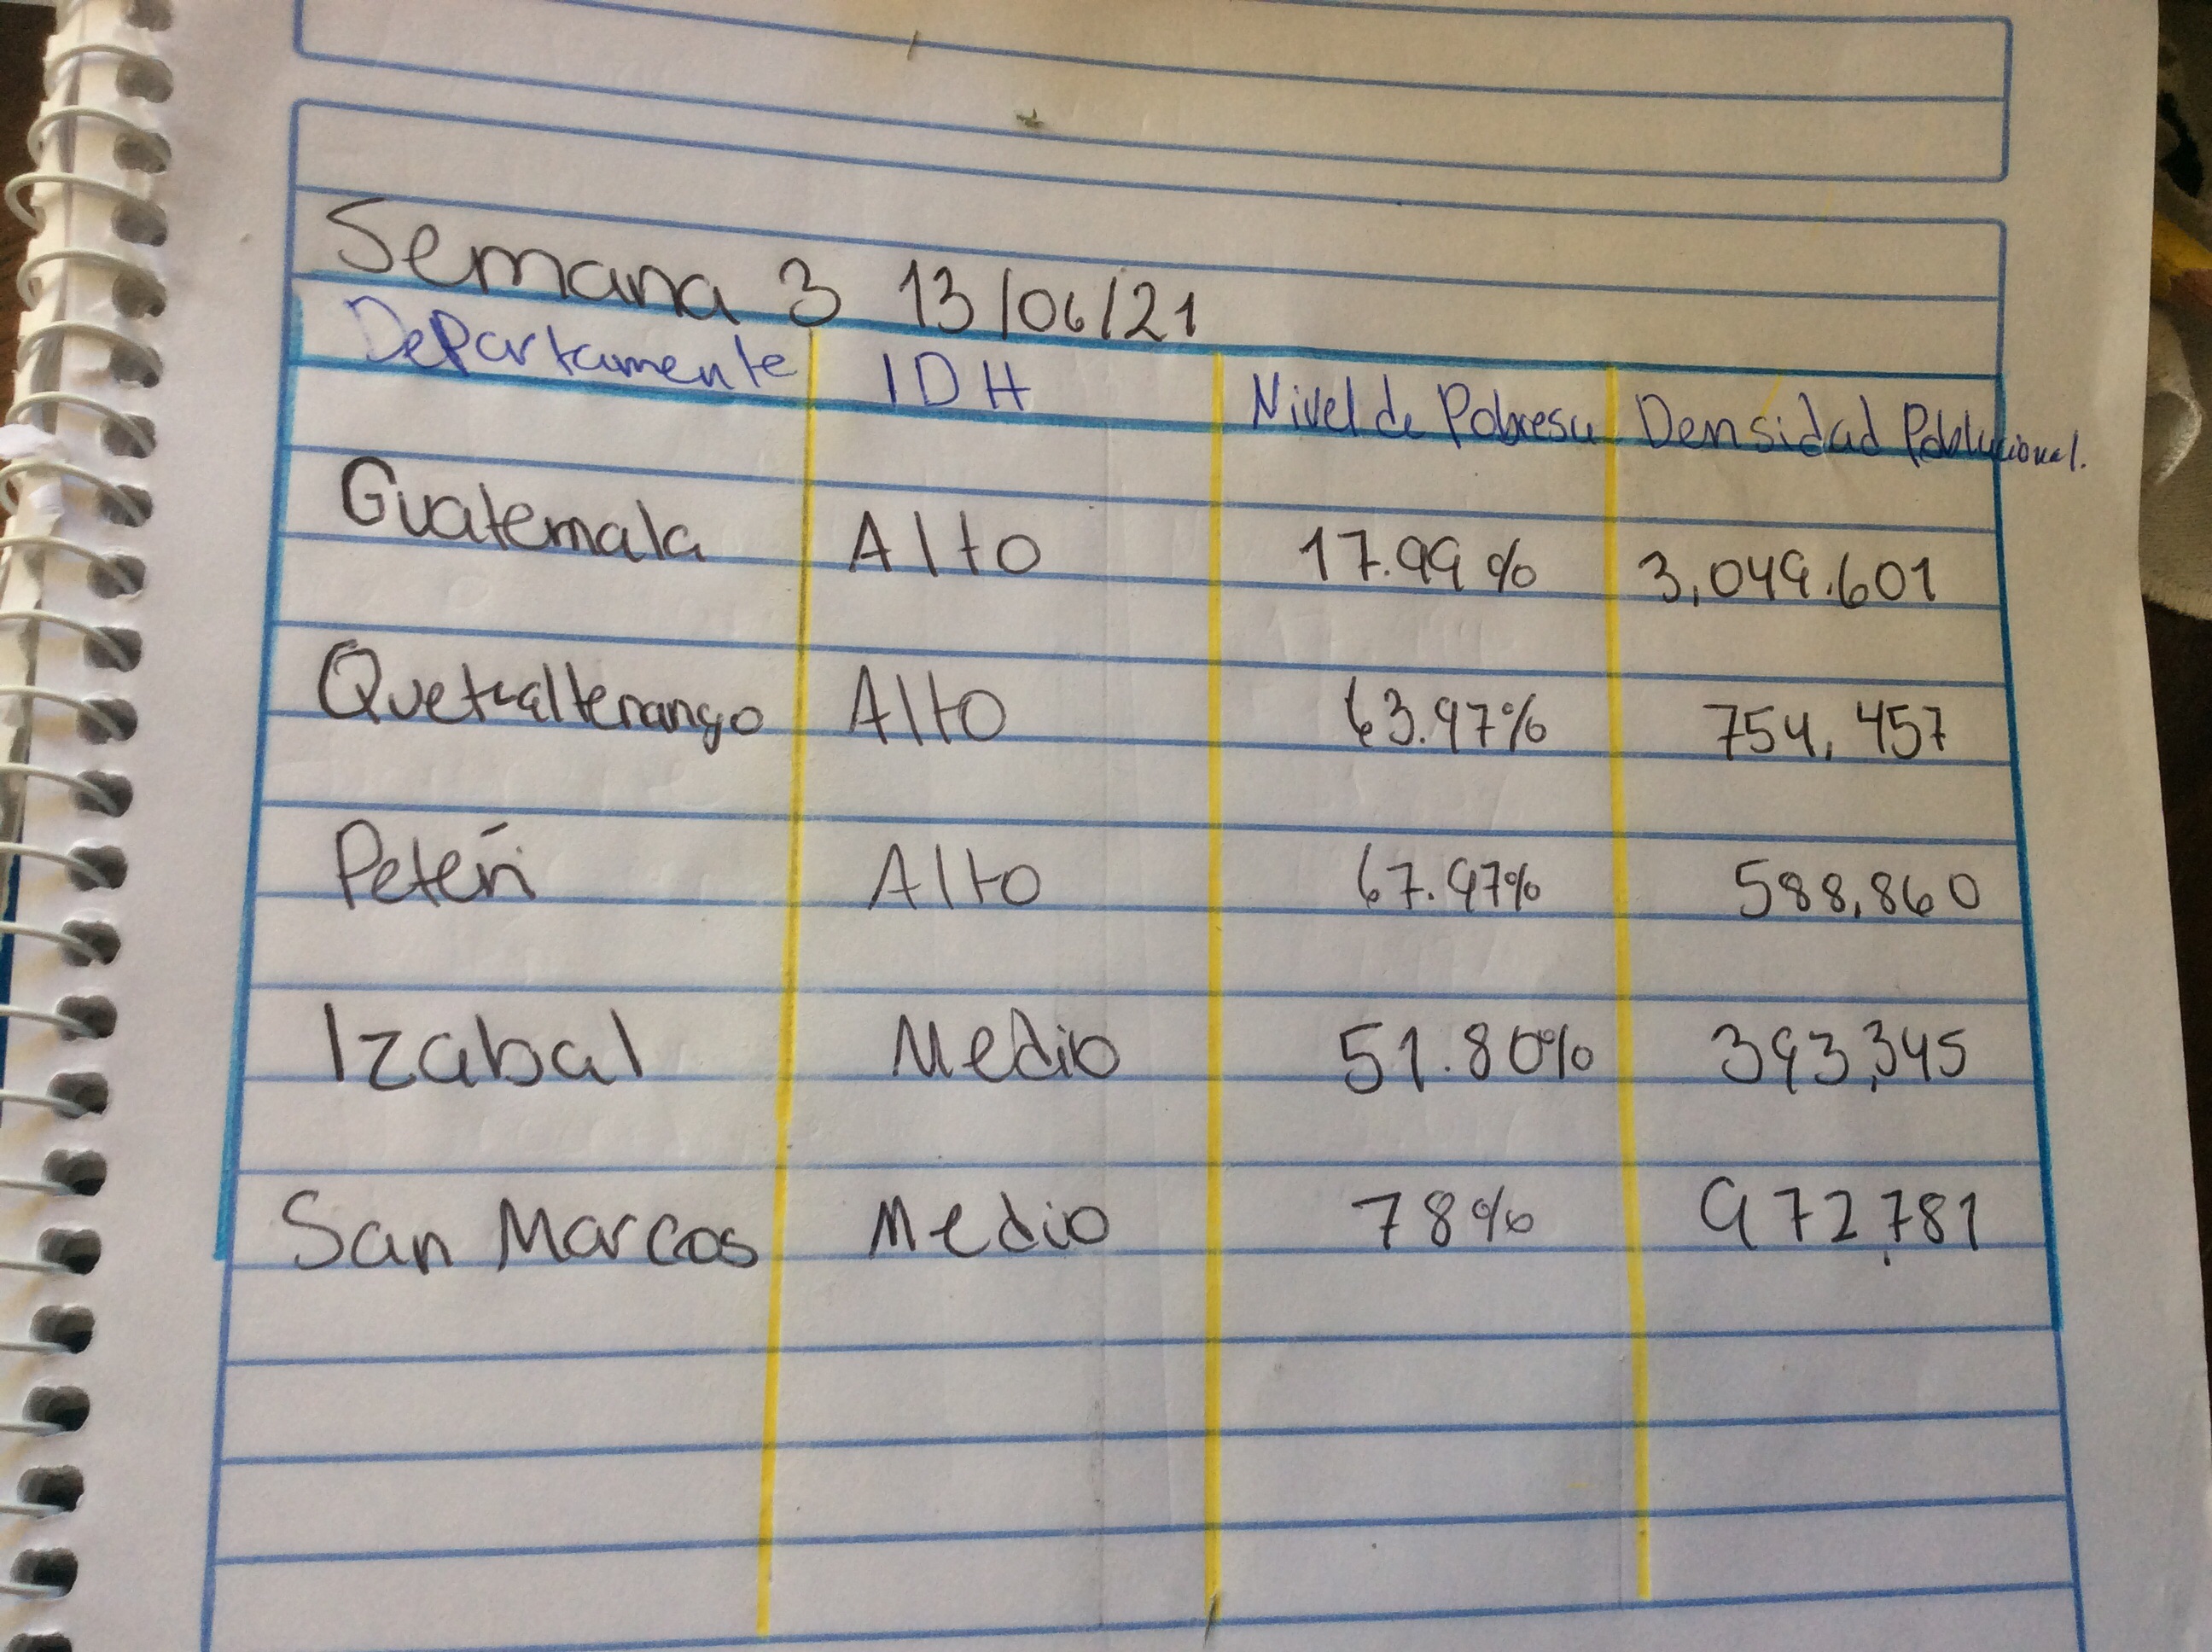 Semana 3 13/06/21
Departamente IDH Nivel de Pobresa Densidad Poblacional.
Guatemala Alto 17.99% 3,049.601
Quetzaltenango Alto 63.97% 754,457
Petén Alto 67.97% 588,860
Izabal Medio 51.80% 393,345
San Marcos Medio 78% 972,781